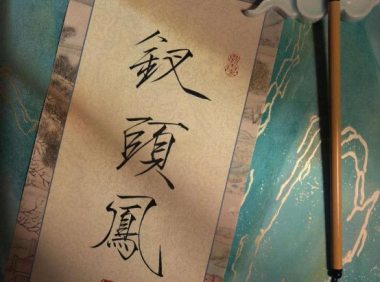 釵頭鳳